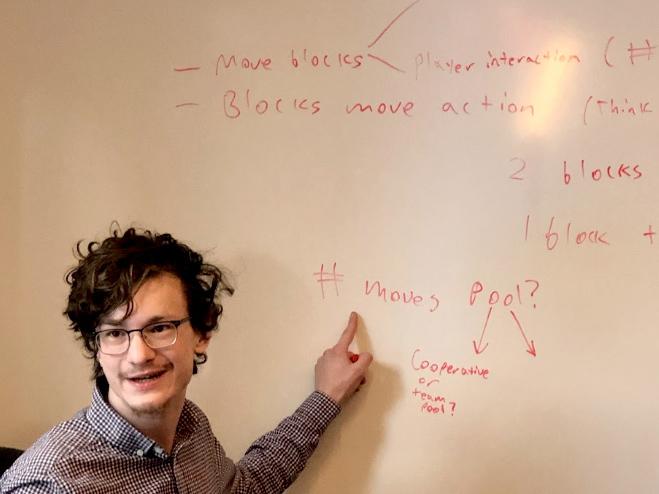 - Move blocks
Player interaction (#
- Blocks move action (Think
2 blocks
1 block +
# moves Pool?
Cooperative
or
team
Pool?